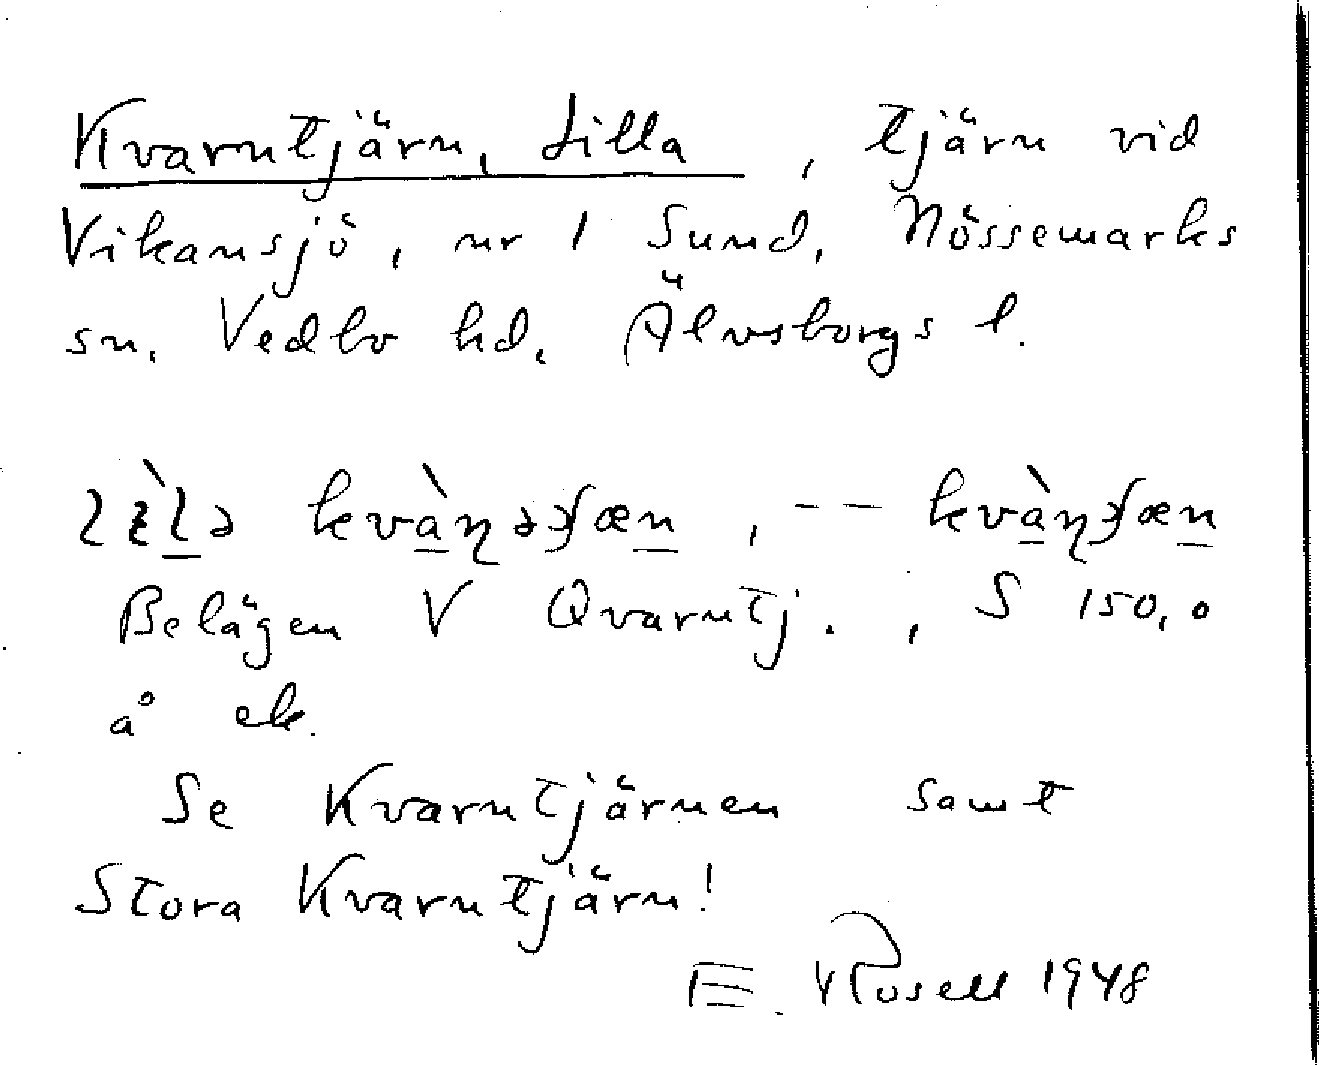 Kvarntjärn, Lilla, tjärn vid
Vikansjö, nr 1 Sund, Nössemarks
sn. Vedbo hd. Älvsborgs l.
Belägen V Qvarntj., S 150,0
å ek.
Se Kvarntjärnen samt
Stora Kvarntjärn!
E. Rosell 1948